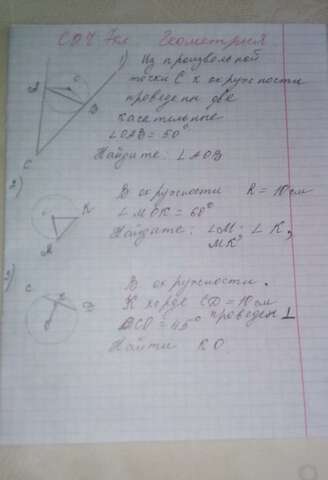 СОЧ 7кл Геометрия
1) Из произвольной
точки С к окружности
проведены две
касательные
∠OAB = 50°
Найдите: ∠AOB
A O
B
C
2) В окружности R = 10 см
∠MOK = 60°
Найдите: ∠M; ∠K,
MK°
K
M
3) В окружности.
К хорде CD = 10 см
∠BCO = 45° проведен ⊥
Найти KO
C
K D
O